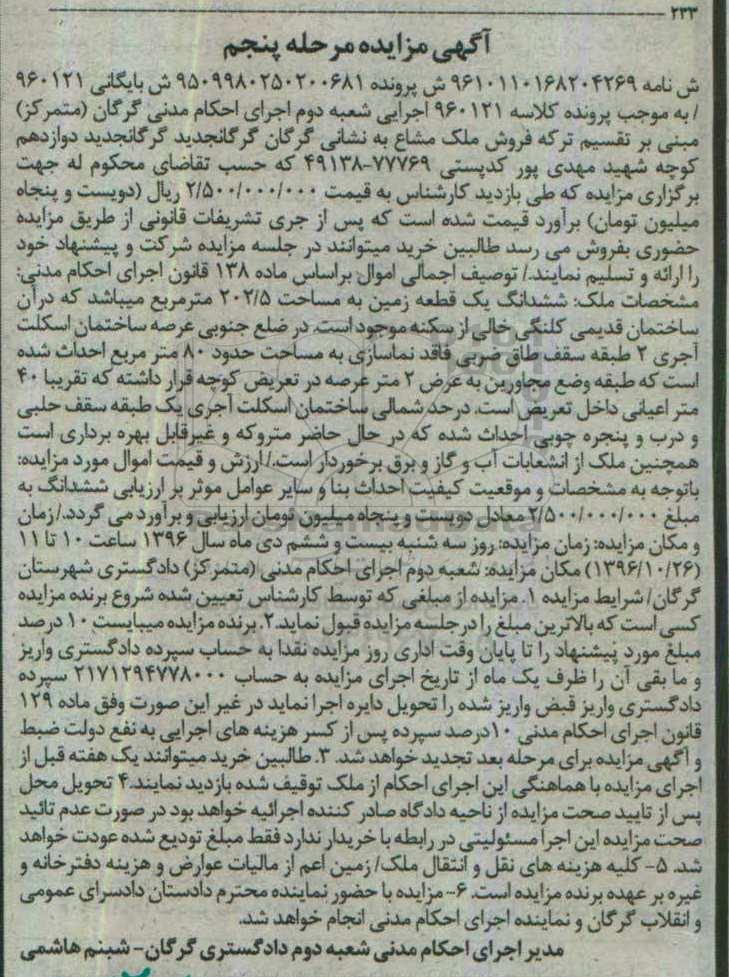 ۲۳۳
آگهی مزایده مرحله پنجم
ش نامه ۹۶۱۰۱۱۰۱۶۸۲۰۴۲۶۹ ش پرونده ۹۵۰۹۹۸۰۲۵۰۲۰۰۶۸۱ ش بایگانی ۹۶۰۱۲۱
/ به موجب پرونده کلاسه ۹۶۰۱۲۱ اجرایی شعبه دوم اجرای احکام مدنی گرگان (متمرکز)
مبنی بر تقسیم ترکه فروش ملک مشاع به نشانی گرگان گرگانجدید گرگانجدید دوازدهم
کوچه شهید مهدی پور کدپستی ۷۷۷۶۹-۴۹۱۳۸ که حسب تقاضای محکوم له جهت
برگزاری مزایده که طی بازدید کارشناس به قیمت ۲/۵۰۰/۰۰۰/۰۰۰ ریال (دویست و پنجاه
میلیون تومان) برآورد قیمت شده است که پس از جری تشریفات قانونی از طریق مزایده
حضوری بفروش می رسد طالبین خرید میتوانند در جلسه مزایده شرکت و پیشنهاد خود
را ارائه و تسلیم نمایند./ توصیف اجمالی اموال براساس ماده ۱۳۸ قانون اجرای احکام مدنی:
مشخصات ملک: ششدانگ یک قطعه زمین به مساحت ۲۰۲/۵ مترمربع میباشد که درآن
ساختمان قدیمی کلنگی خالی از سکنه موجود است. در ضلع جنوبی عرصه ساختمان اسکلت
آجری ۲ طبقه سقف طاق ضربی فاقد نماسازی به مساحت حدود ۸۰ متر مربع احداث شده
است که طبقه وضع مجاورین به عرض ۲ متر عرصه در تعریض کوچه قرار داشته که تقریبا ۴۰
متر اعیانی داخل تعریض است. درحد شمالی ساختمان اسکلت آجری یک طبقه سقف حلبی
و درب و پنجره چوبی احداث شده که در حال حاضر متروکه و غیرقابل بهره برداری است
همچنین ملک از انشعابات آب و گاز و برق برخوردار است./ ارزش و قیمت اموال مورد مزایده:
باتوجه به مشخصات و موقعیت کیفیت احداث بنا و سایر عوامل موثر بر ارزیابی ششدانگ به
مبلغ ۲/۵۰۰/۰۰۰/۰۰۰ معادل دویست و پنجاه میلیون تومان ارزیابی و برآورد می گردد./ زمان
و مکان مزایده: زمان مزایده: روز سه شنبه بیست و ششم دی ماه سال ۱۳۹۶ ساعت ۱۰ تا ۱۱
(۱۳۹۶/۱۰/۲۶) مکان مزایده: شعبه دوم اجرای احکام مدنی (متمرکز) دادگستری شهرستان
گرگان/ شرایط مزایده ۱. مزایده از مبلغی که توسط کارشناس تعیین شده شروع برنده مزایده
کسی است که بالاترین مبلغ را درجلسه مزایده قبول نماید. ۲. برنده مزایده میبایست ۱۰ درصد
مبلغ مورد پیشنهاد را تا پایان وقت اداری روز مزایده نقدا به حساب سپرده دادگستری واریز
و ما بقی آن را ظرف یک ماه از تاریخ اجرای مزایده به حساب ۲۱۷۱۲۹۴۷۷۸۰۰۰ سپرده
دادگستری واریز قبض واریز شده را تحویل دایره اجرا نماید در غیر این صورت وفق ماده ۱۲۹
قانون اجرای احکام مدنی ۱۰درصد سپرده پس از کسر هزینه های اجرایی به نفع دولت ضبط
و آگهی مزایده برای مرحله بعد تجدید خواهد شد. ۳. طالبین خرید میتوانند یک هفته قبل از
اجرای مزایده با هماهنگی این اجرای احکام از ملک توقیف شده بازدید نمایند. ۴ تحویل محل
پس از تایید صحت مزایده از ناحیه دادگاه صادر کننده اجرائیه خواهد بود در صورت عدم تائید
صحت مزایده این اجرا مسئولیتی در رابطه با خریدار ندارد فقط مبلغ تودیع شده عودت خواهد
شد. ۵- کلیه هزینه های نقل و انتقال ملک/ زمین اعم از مالیات عوارض و هزینه دفترخانه و
غیره بر عهده برنده مزایده است. ۶- مزایده با حضور نماینده محترم دادستان دادسرای عمومی
و انقلاب گرگان و نماینده اجرای احکام مدنی انجام خواهد شد.
مدیر اجرای احکام مدنی شعبه دوم دادگستری گرگان- شبنم هاشمی